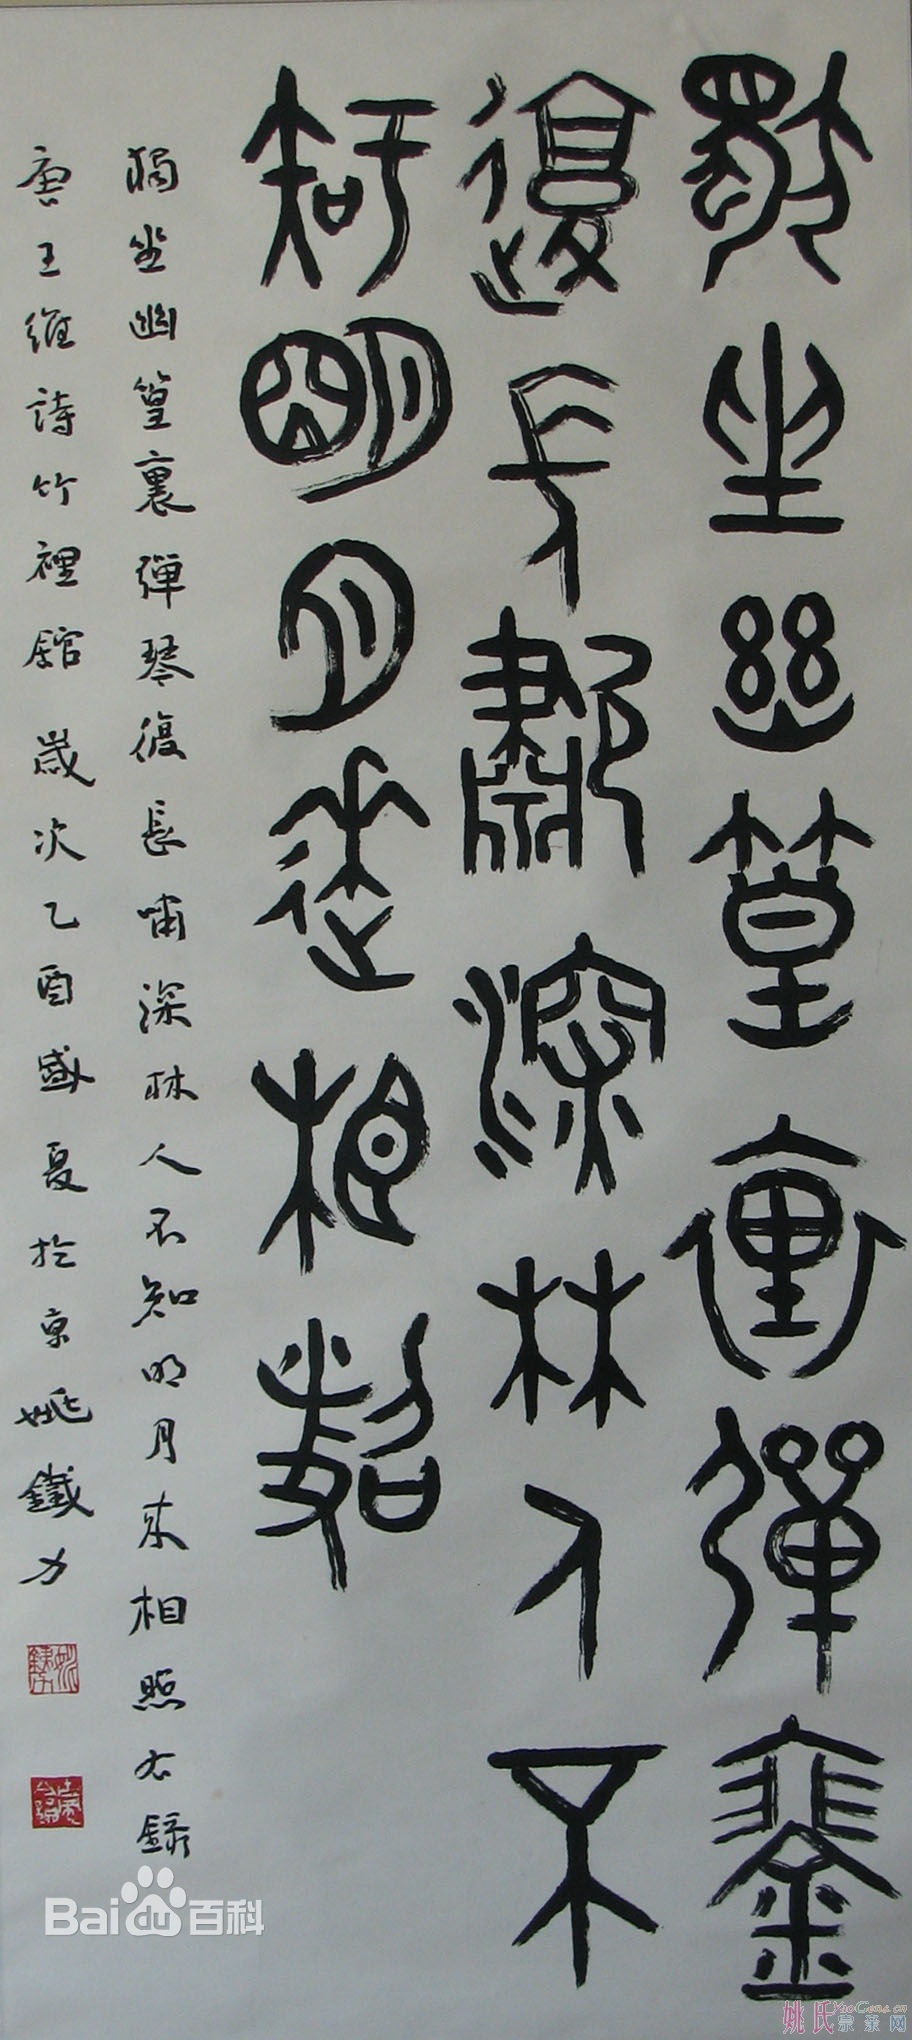 獨坐幽篁裏彈琴
復長嘯深林人不
知明月來相照
獨坐幽篁裏彈琴復長嘯深林人不知明月來相照右錄
唐王維詩竹裡館 歲次乙酉盛夏於京姚鐵力
Bai百科
姚氏宗亲网
YaoGens.cn